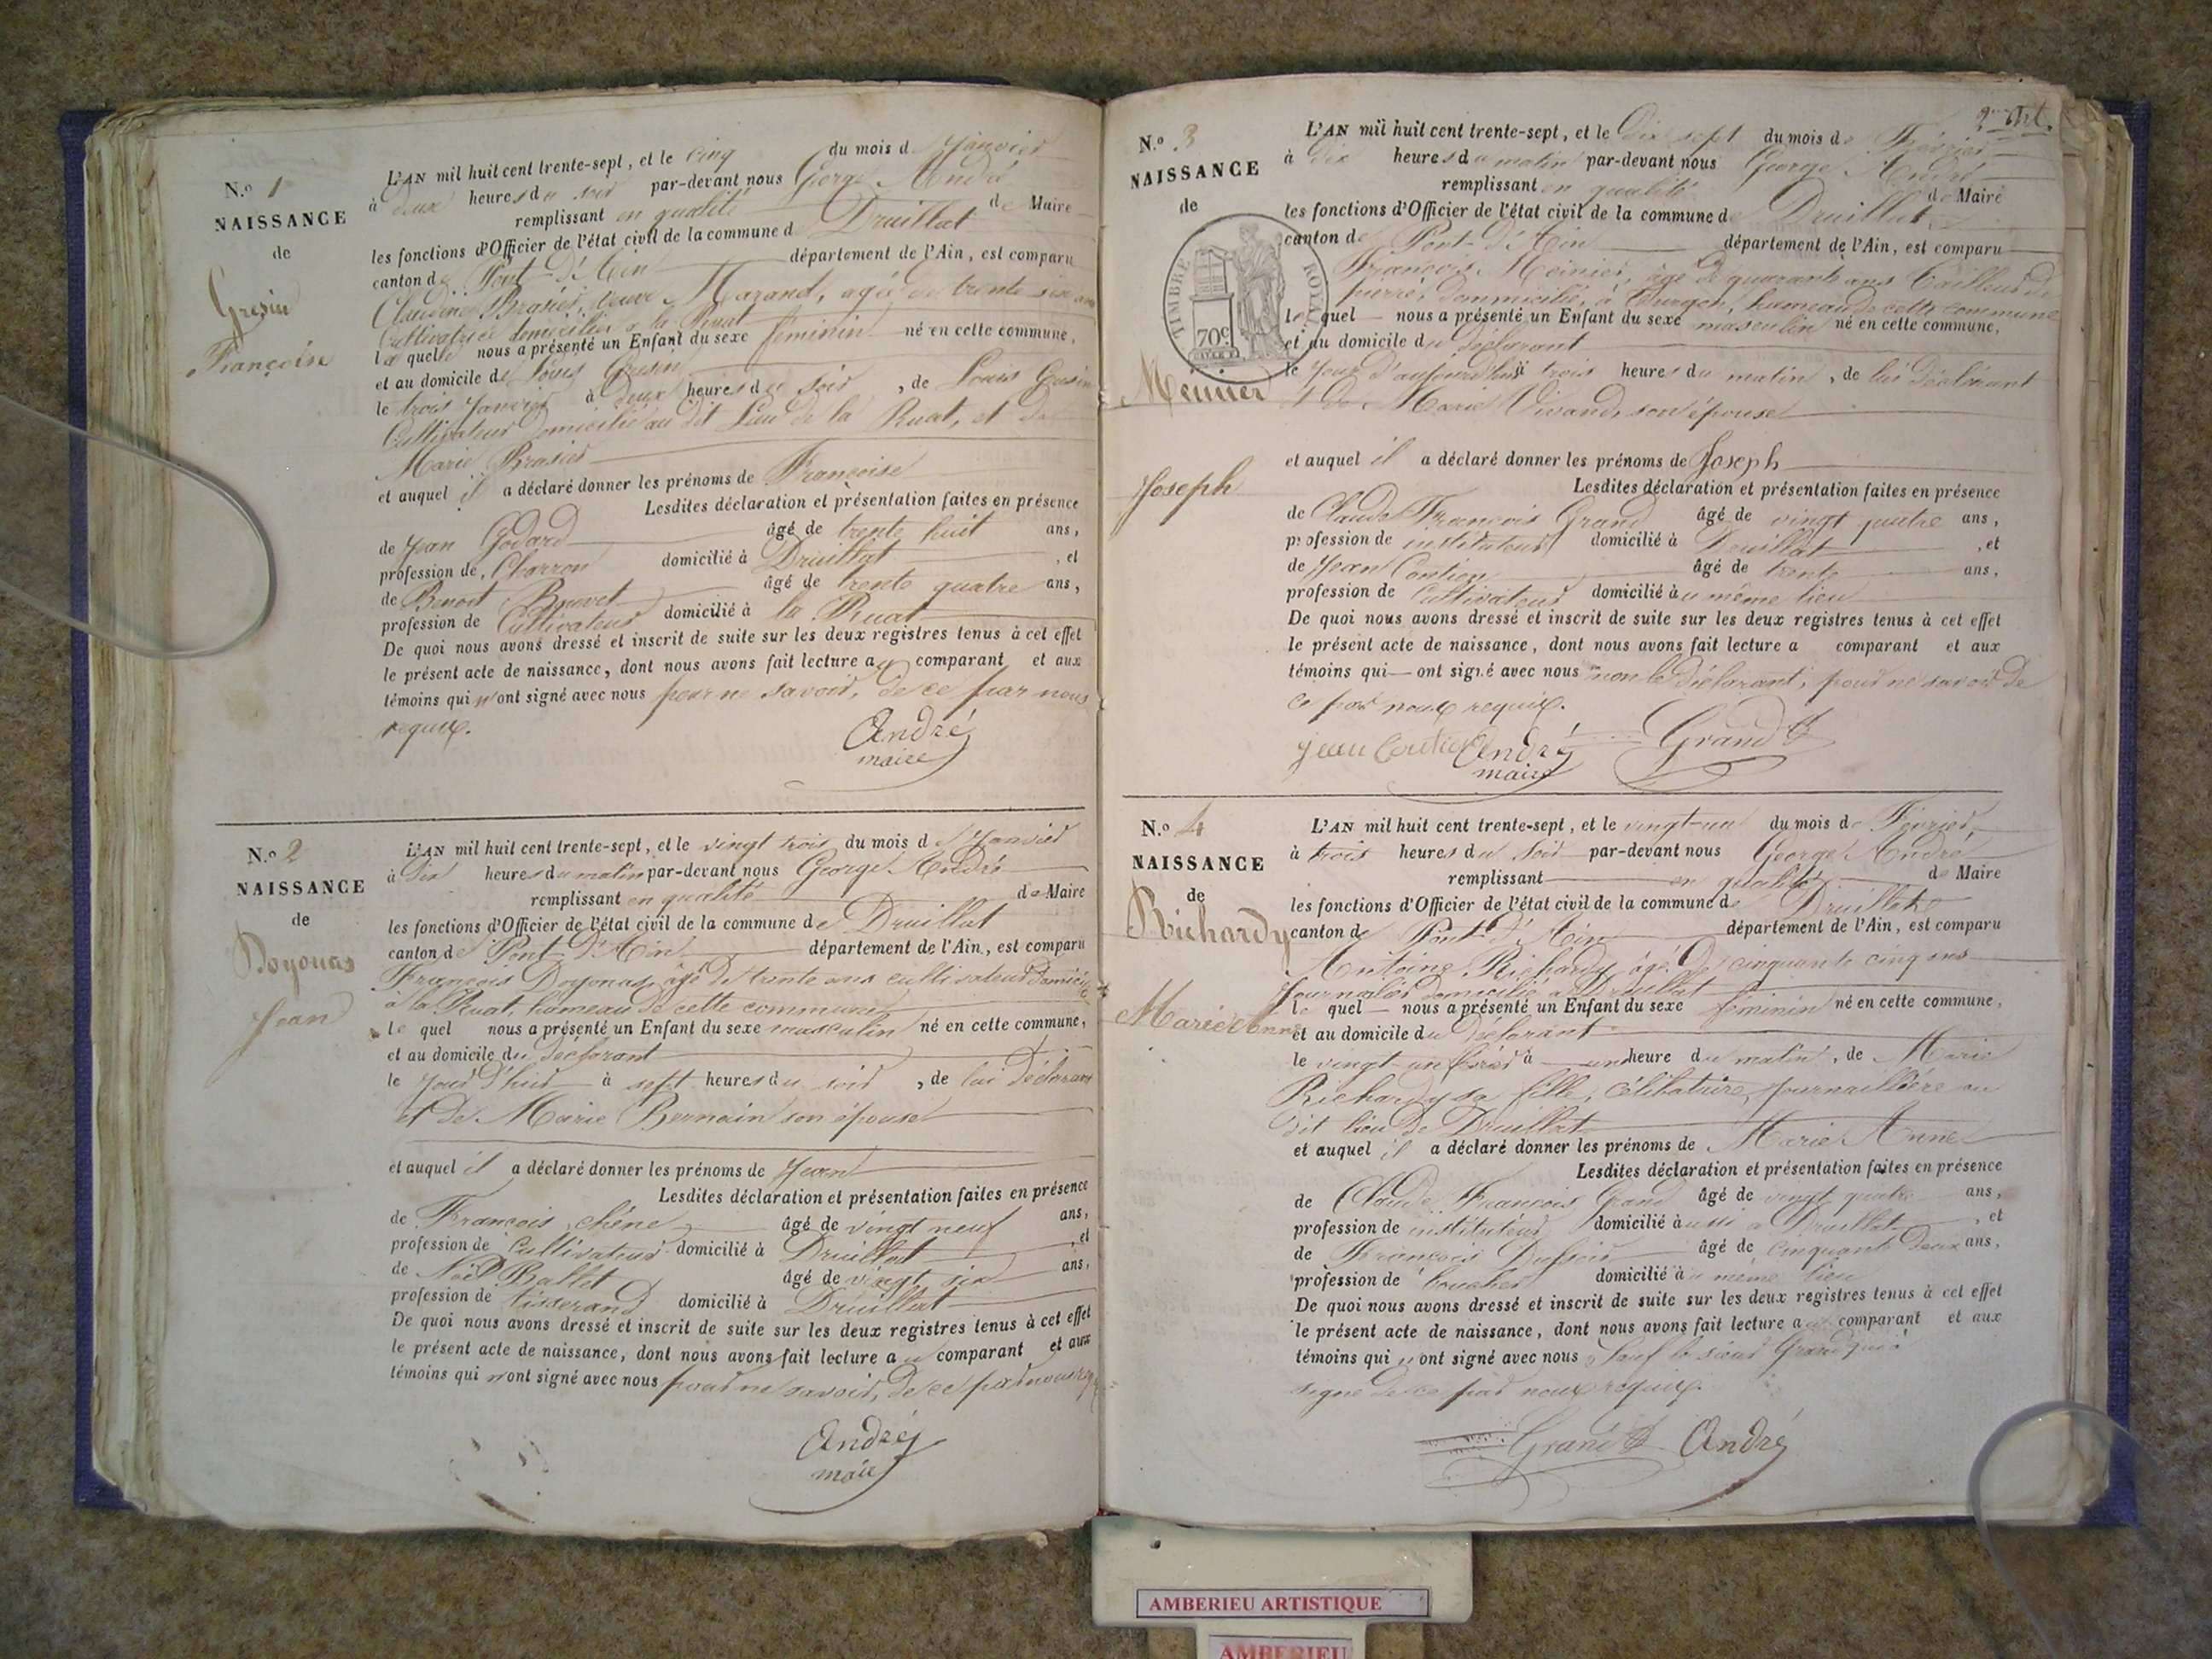 N.º 1
NAISSANCE
de
Gresin
Françoise
L'AN mil huit cent trente-sept, et le cinq du mois de Janvier
à deux heures du soir par-devant nous George André
remplissant en qualité de Maire
les fonctions d'Officier de l'état civil de la commune d Druillat
canton de Pont-d'Ain département de l'Ain, est comparu
Claudine Brasier, veuve Marand, agée de trente six ans
Cultivatrice domiciliée a la Ruat
laquelle nous a présenté un Enfant du sexe féminin né en cette commune,
et au domicile de Louis Gresin
le trois Janvier à deux heures du soir, de Louis Gresin
Cultivateur domicilié au dit Lieu de la Ruat, et de
Marie Brasier
et auquel il a déclaré donner les prénoms de Françoise
Lesdites déclaration et présentation faites en présence
de Jean Godard âgé de trente huit ans,
profession de Charron domicilié à Druillat, et
de Benoit Buvet âgé de trente quatre ans,
profession de Cultivateur domicilié à la Ruat
De quoi nous avons dressé et inscrit de suite sur les deux registres tenus à cet effet
le présent acte de naissance, dont nous avons fait lecture au comparant et aux
témoins qui n'ont signé avec nous pour ne savoir, de ce par nous
requis.
André
maire
N.º 2
NAISSANCE
de
Doyonas
Jean
L'AN mil huit cent trente-sept, et le vingt trois du mois de Janvier
à dix heures du matin par-devant nous George André
remplissant en qualité de Maire
les fonctions d'Officier de l'état civil de la commune de Druillat
canton de Pont-d'Ain département de l'Ain, est comparu
François Doyonas, âgé de trente ans cultivateur domicilié
à la Ruat, hameau de cette commune
le quel nous a présenté un Enfant du sexe masculin né en cette commune,
et au domicile du déclarant
le jour d'hier à sept heures du soir, de lui déclarant
et de Marie Bernain son épouse
et auquel il a déclaré donner les prénoms de Jean
Lesdites déclaration et présentation faites en présence
de François chêne âgé de vingt neuf ans,
profession de Cultivateur domicilié à Druillat, et
de Noël Ballet âgé de vingt six ans,
profession de tisserand domicilié à Druillat
De quoi nous avons dressé et inscrit de suite sur les deux registres tenus à cet effet
le présent acte de naissance, dont nous avons fait lecture au comparant et aux
témoins qui n'ont signé avec nous pour ne savoir, de ce par nous
André
maire
N.º 3
NAISSANCE
de
TIMBRE ROYAL
70 c
Meunier
Joseph
L'AN mil huit cent trente-sept, et le Dix sept du mois de Février
à Dix heures du matin par-devant nous George André
remplissant en qualité de Maire
les fonctions d'Officier de l'état civil de la commune de Druillat
canton de Pont-d'Ain département de l'Ain, est comparu
François Meinier, âgé de quarante ans Tailleur de
pierre, domicilié, à Turgon, hameau de cette commune
lequel nous a présenté un Enfant du sexe masculin né en cette commune,
et au domicile du déclarant
le jour d'aujourd'hui à trois heures du matin, de lui déclarant
et de Marie Vivand, son épouse
et auquel il a déclaré donner les prénoms de Joseph
Lesdites déclaration et présentation faites en présence
de Claude François Grand âgé de vingt quatre ans,
profession de instituteur domicilié à Druillat, et
de Jean âgé de trente ans,
profession de Cultivateur domicilié au même lieu
De quoi nous avons dressé et inscrit de suite sur les deux registres tenus à cet effet
le présent acte de naissance, dont nous avons fait lecture a comparant et aux
témoins qui ont signé avec nous non le déclarant, pour ne savoir de
ce par nous requis.
Jean André Grand
maire
N.º 4
NAISSANCE
de
Richardy
Marie Anne
L'AN mil huit cent trente-sept, et le vingt-un du mois de Février,
à trois heures du soir par-devant nous George André
remplissant en qualité de Maire
les fonctions d'Officier de l'état civil de la commune de Druillat
canton de Pont-d'Ain département de l'Ain, est comparu
Antoine Richardy, âgé de cinquante cinq ans
Journalier domicilié a Druillat
le quel nous a présenté un Enfant du sexe féminin né en cette commune,
et au domicile du déclarant
le vingt-un février à une heure du matin, de Marie
Richardy sa fille, célibataire, journaillière au
dit lieu de Druillat
et auquel il a déclaré donner les prénoms de Marie Anne
Lesdites déclaration et présentation faites en présence
de Claude François Grand âgé de vingt quatre ans,
profession de instituteur domicilié aussi a Druillat, et
de François âgé de cinquante deux ans,
profession de boucher domicilié au même lieu
De quoi nous avons dressé et inscrit de suite sur les deux registres tenus à cet effet
le présent acte de naissance, dont nous avons fait lecture au comparant et aux
témoins qui n'ont signé avec nous Sauf le sieur Grand qui a
signé de ce par nous requis.
Grand André
AMBERIEU ARTISTIQUE
AMBERIEU